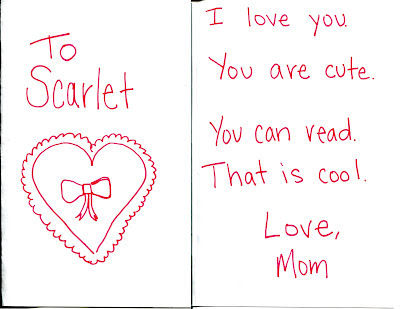 To
Scarlet
I love you.
You are cute.
You can read.
That is cool.
Love,
Mom